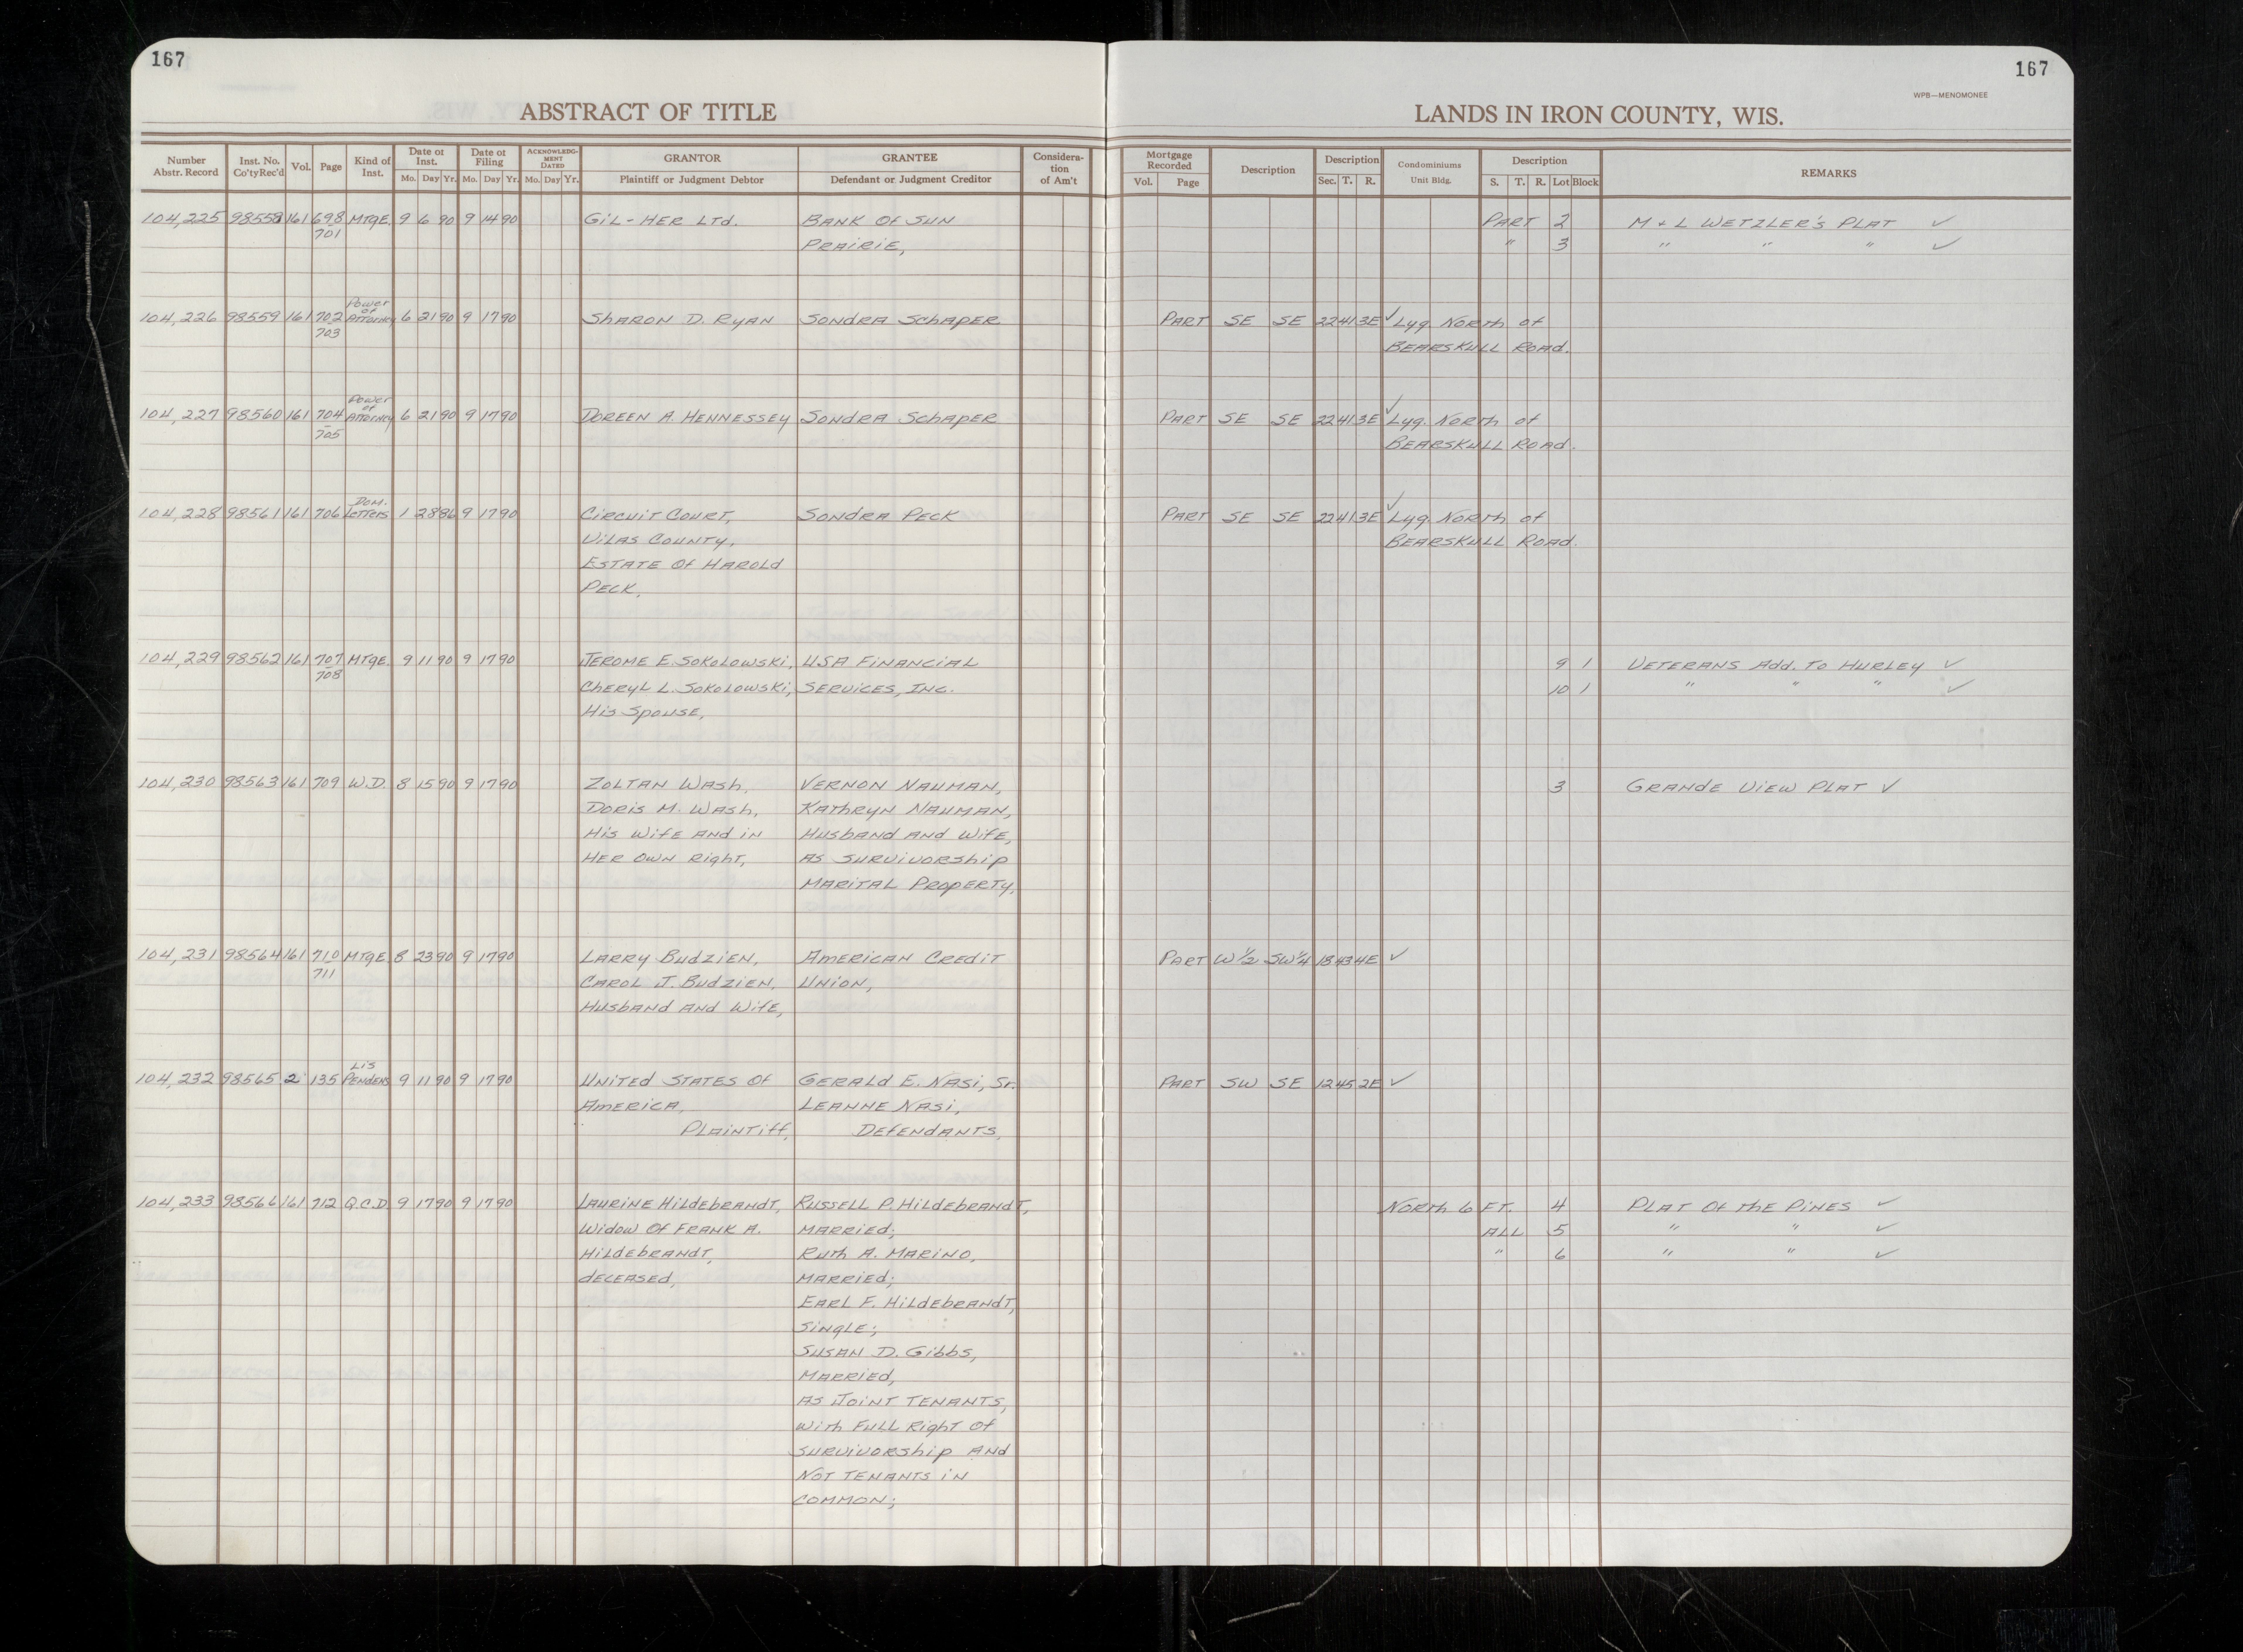 167
167
WPB—MENOMONEE
ABSTRACT OF TITLE
LANDS IN IRON COUNTY, WIS.
Number Abstr. Record Inst. No. Co'ty Rec'd Vol. Page Kind of Inst. Date of Inst. Mo. Day Yr. Date of Filing Mo. Day Yr. ACKNOWLEDGMENT DATED Mo. Day Yr. GRANTOR Plaintiff or Judgment Debtor GRANTEE Defendant or Judgment Creditor Consideration of Am't Mortgage Recorded Vol. Page Description Description Sec. T. R. Condominiums Unit Bldg. Description S. T. R. Lot Block REMARKS
104,225 98558 161 698 MTGE. 9 6 90 9 14 90 GIL-HER LTD. BANK OF SUN PART 2 M & L WETZLER'S PLAT ✓
701 PRAIRIE, " 3 " " " ✓
Power
of
104,226 98559 161 702 ATTORNEY 6 21 90 9 17 90 SHARON D. RYAN SONDRA SCHAPER PART SE SE 22 41 3E ✓ Lyg. NORTH of
703 BEARSKULL ROAD.
Power
of
104,227 98560 161 704 ATTORNEY 6 21 90 9 17 90 DOREEN A. HENNESSEY SONDRA SCHAPER PART SE SE 22 41 3E ✓ Lyg. NORTH of
705 BEARSKULL ROAD.
DOM.
104,228 98561 161 706 LETTERS 1 28 86 9 17 90 CIRCUIT COURT, SONDRA PECK PART SE SE 22 41 3E ✓ Lyg. NORTH of
VILAS COUNTY, BEARSKULL ROAD.
ESTATE OF HAROLD
PECK,
104,229 98562 161 707 MTGE. 9 11 90 9 17 90 JEROME E. SOKOLOWSKI, USA FINANCIAL 9 1 VETERANS ADD. TO HURLEY ✓
708 CHERYL L. SOKOLOWSKI, SERVICES, INC. 10 1 " " " ✓
HIS SPOUSE,
104,230 98563 161 709 W.D. 8 15 90 9 17 90 ZOLTAN WASH, VERNON NAUMAN, 3 GRANDE VIEW PLAT ✓
DORIS M. WASH, KATHRYN NAUMAN,
HIS WIFE AND IN HUSBAND AND WIFE,
HER OWN RIGHT, AS SURVIVORSHIP
MARITAL PROPERTY,
104,231 98564 161 710 MTGE 8 23 90 9 17 90 LARRY BUDZIEN, AMERICAN CREDIT PART W½ SW¼ 18 43 4E ✓
711 CAROL J. BUDZIEN, UNION,
HUSBAND AND WIFE,
LIS
104,232 98565 2 135 PENDENS 9 11 90 9 17 90 UNITED STATES OF GERALD E. NASI, SR. PART SW SE 12 45 2E ✓
AMERICA, LEANNE NASI,
PLAINTIFF, DEFENDANTS,
104,233 98566 161 712 Q.C.D. 9 17 90 9 17 90 LAURINE HILDEBRANDT, RUSSELL P. HILDEBRANDT, NORTH 6 FT. 4 PLAT OF THE PINES ✓
WIDOW OF FRANK A. MARRIED; ALL 5 " " ✓
HILDEBRANDT, RUTH A. MARINO, " 6 " " ✓
DECEASED, MARRIED;
EARL F. HILDEBRANDT,
SINGLE;
SUSAN D. GIBBS,
MARRIED,
AS JOINT TENANTS,
WITH FULL RIGHT OF
SURVIVORSHIP AND
NOT TENANTS IN
COMMON;